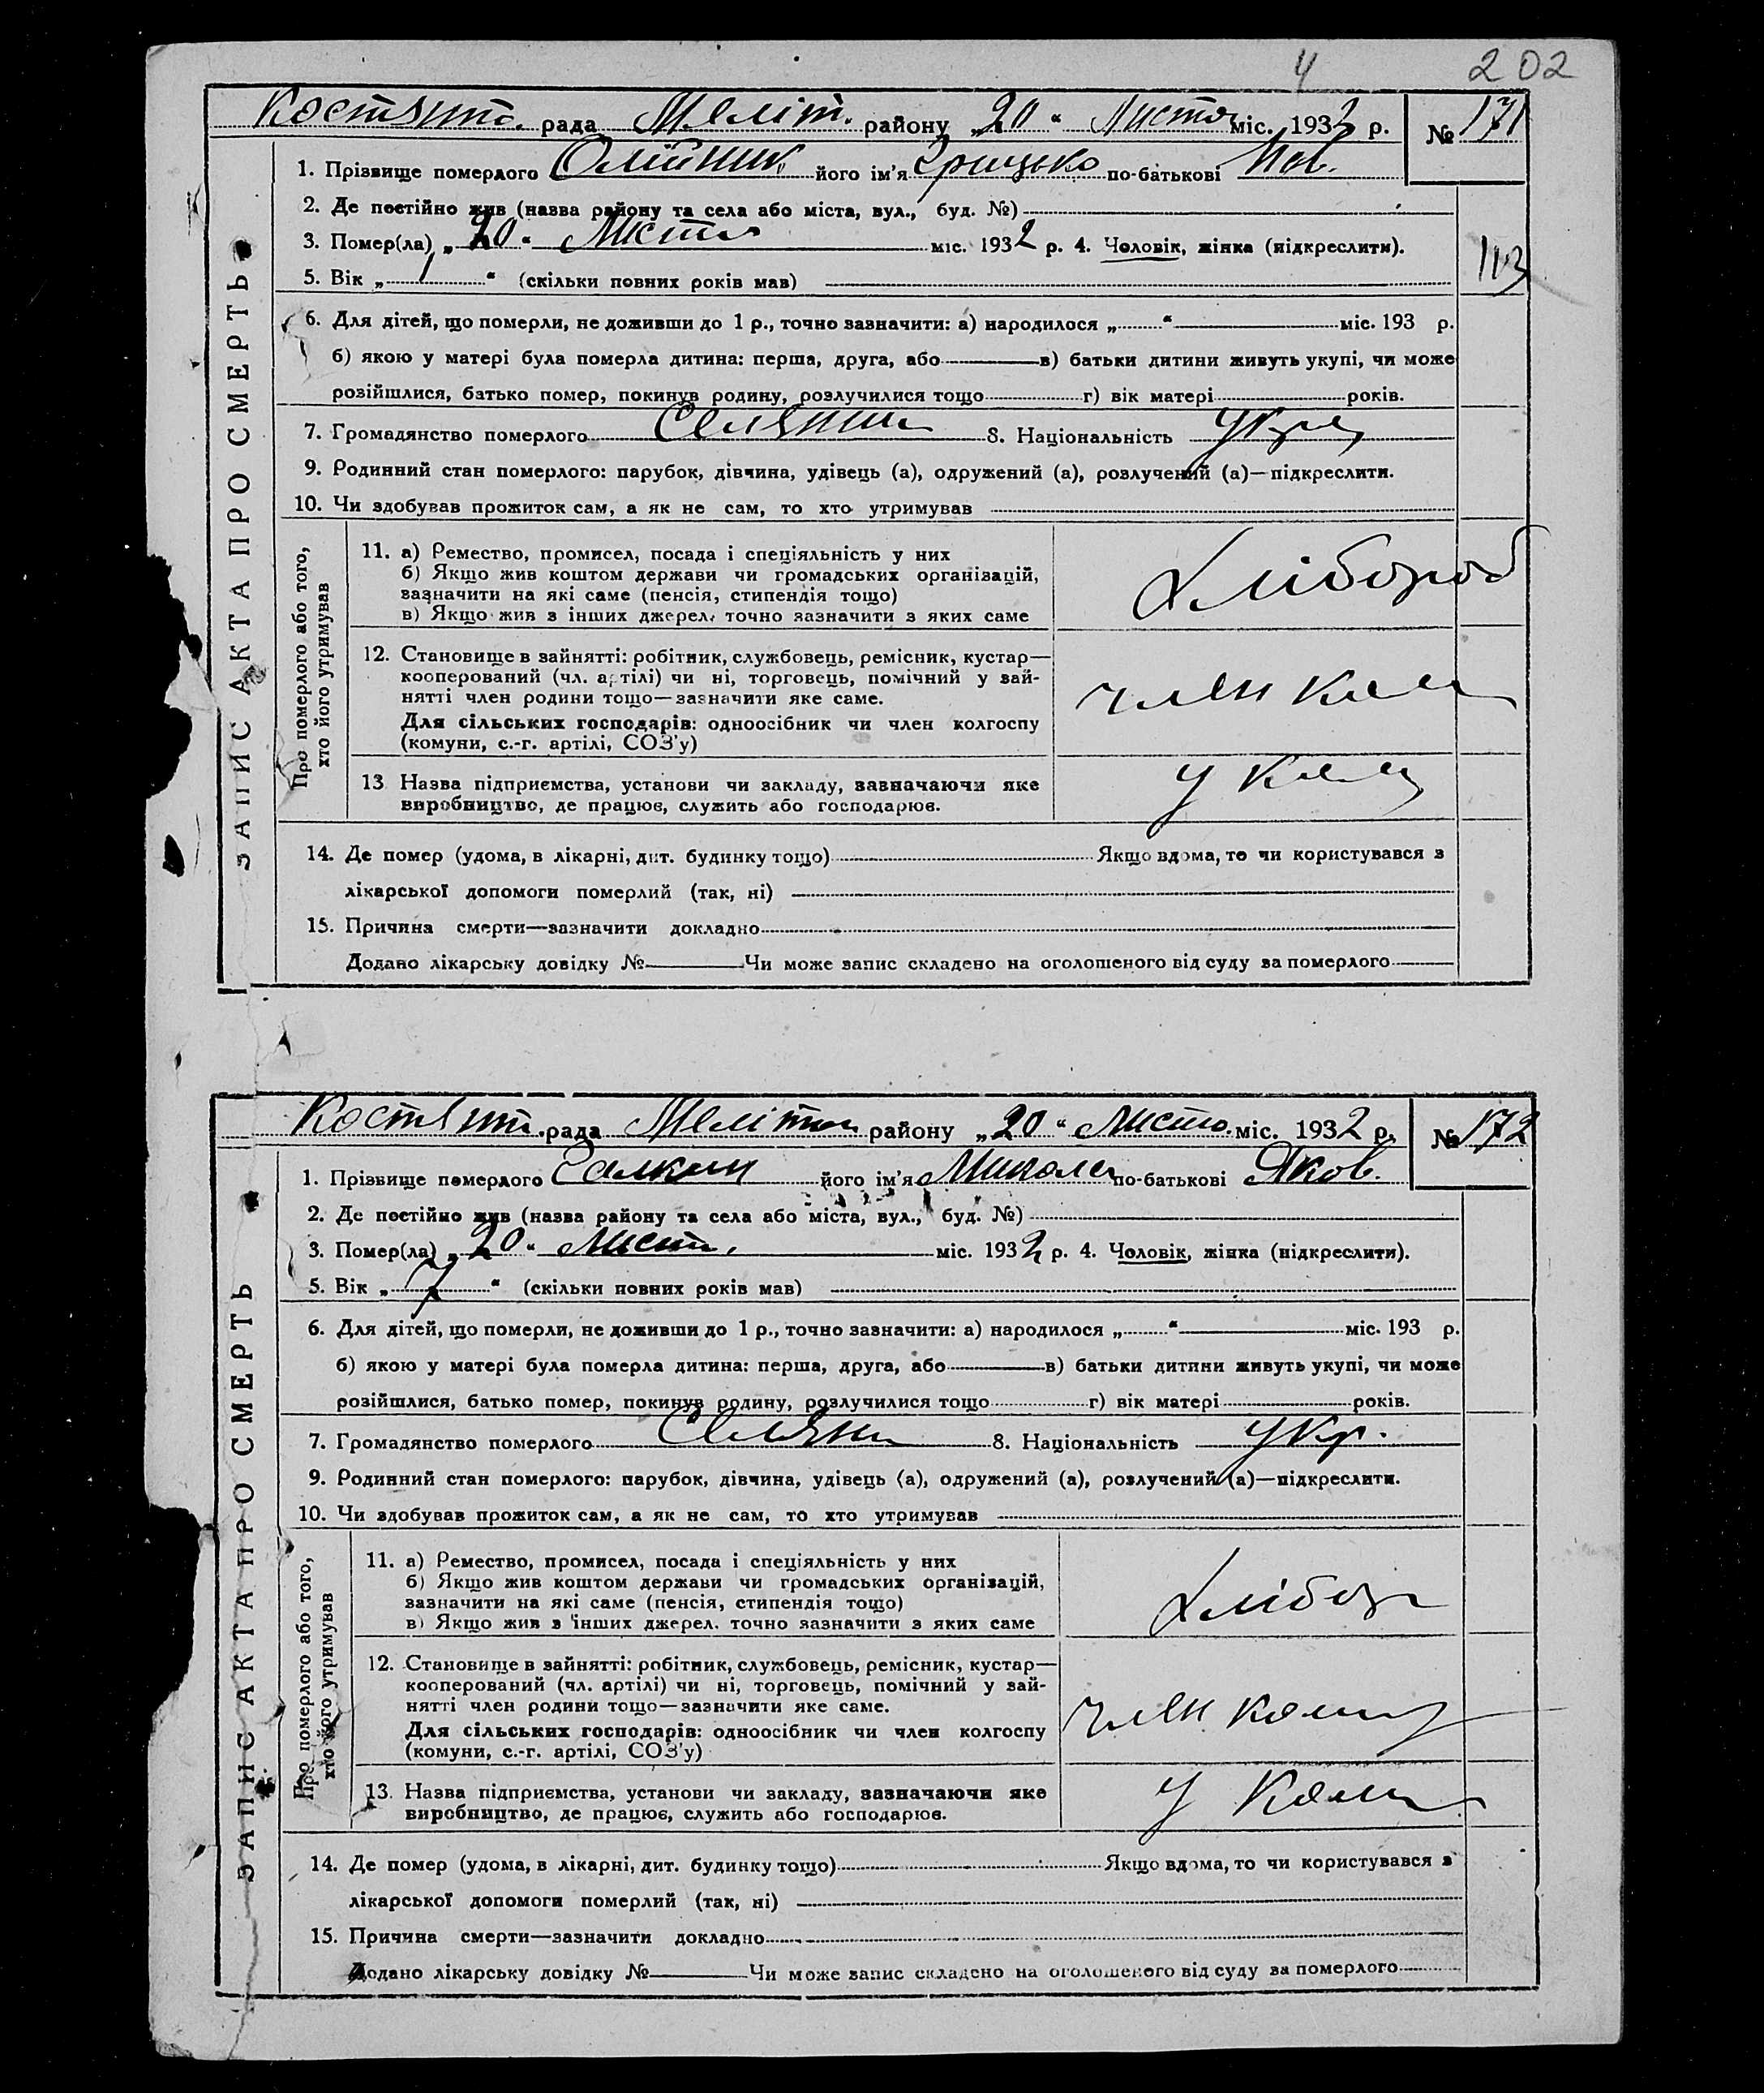 4 202
Костянт. рада Меліт. району „20“ Листоп міс. 1932 р. № 171
1. Прізвище померлого Олійник його ім'я Грицько по-батькові
2. Де постійно жив (назва району та села або міста, вул., буд. №)
3. Помер(ла) „20“ Листо міс. 1932 р. 4. Чоловік, жінка (підкреслити).
5. Вік „1“ (скільки повних років мав)
113
6. Для дітей, що померли, не доживши до 1 р., точно зазначити: а) народилося „ “ міс. 193 р.
б) якою у матері була померла дитина: перша, друга, або в) батьки дитини живуть укупі, чи може
розійшлися, батько помер, покинув родину, розлучилися тощо г) вік матері років.
7. Громадянство померлого Селянин 8. Національність Укр
9. Родинний стан померлого: парубок, дівчина, удівець (а), одружений (а), розлучений (а)—підкреслити.
10. Чи здобував прожиток сам, а як не сам, то хто утримував
ЗАПИС АКТА ПРО СМЕРТЬ
Про померлого або того,
хто його утримував
11. а) Ремество, промисел, посада і спеціяльність у них
б) Якщо жив коштом держави чи громадських організацій,
зазначити на які саме (пенсія, стипендія тощо)
в) Якщо жив з інших джерел, точно зазначити з яких саме
Хлібороб
12. Становище в зайнятті: робітник, службовець, ремісник, кустар—
кооперований (чл. артілі) чи ні, торговець, помічний у зай-
нятті член родини тощо—зазначити яке саме.
Для сільських господарів: одноосібник чи член колгоспу
(комуни, с.-г. артілі, СОЗ'у)
член кол
13 Назва підприємства, установи чи закладу, зазначаючи яке
виробництво, де працює, служить або господарює.
у кол
14. Де помер (удома, в лікарні, дит. будинку тощо) Якщо вдома, то чи користувався з
лікарської допомоги померлий (так, ні)
15. Причина смерти—зазначити докладно
Додано лікарську довідку № Чи може запис складено на оголошеного від суду за померлого
Костянт. рада Меліт району „20“ Листо. міс. 1932 р. № 172
1. Прізвище померлого Галкин його ім'я Микола по-батькові Яков.
2. Де постійно жив (назва району та села або міста, вул., буд. №)
3. Помер(ла) „20“ Лист. міс. 1932 р. 4. Чоловік, жінка (підкреслити).
5. Вік „7“ (скільки повних років мав)
6. Для дітей, що померли, не доживши до 1 р., точно зазначити: а) народилося „ “ міс. 193 р.
б) якою у матері була померла дитина: перша, друга, або в) батьки дитини живуть укупі, чи може
розійшлися, батько помер, покинув родину, розлучилися тощо г) вік матері років.
7. Громадянство померлого Селян 8. Національність Укр.
9. Родинний стан померлого: парубок, дівчина, удівець (а), одружений (а), розлучений (а)—підкреслити.
10. Чи здобував прожиток сам, а як не сам, то хто утримував
ЗАПИС АКТА ПРО СМЕРТЬ
Про померлого або того,
хто його утримував
11. а) Ремество, промисел, посада і спеціяльність у них
б) Якщо жив коштом держави чи громадських організацій,
зазначити на які саме (пенсія, стипендія тощо)
в) Якщо жив з інших джерел. точно зазначити з яких саме
Хлібор
12. Становище в зайнятті: робітник, службовець, ремісник, кустар—
кооперований (чл. артілі) чи ні, торговець, помічний у зай-
нятті член родини тощо—зазначити яке саме.
Для сільських господарів: одноосібник чи член колгоспу
(комуни, с.-г. артілі, СОЗ'у)
член кол
13. Назва підприємства, установи чи закладу, зазначаючи яке
виробництво, де працює, служить або господарює.
у кол
14. Де помер (удома, в лікарні, дит. будинку тощо) Якщо вдома, то чи користувався з
лікарської допомоги померлий (так, ні)
15. Причина смерти—зазначити докладно
Додано лікарську довідку № Чи може запис складено на оголошеного від суду за померлого